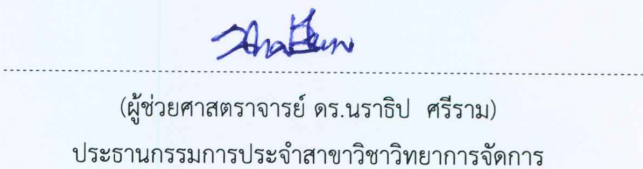 (ผู้ช่วยศาสตราจารย์ ดร.นราธิป ศรีราม)
ประธานกรรมการประจำสาขาวิชาวิทยาการจัดการ